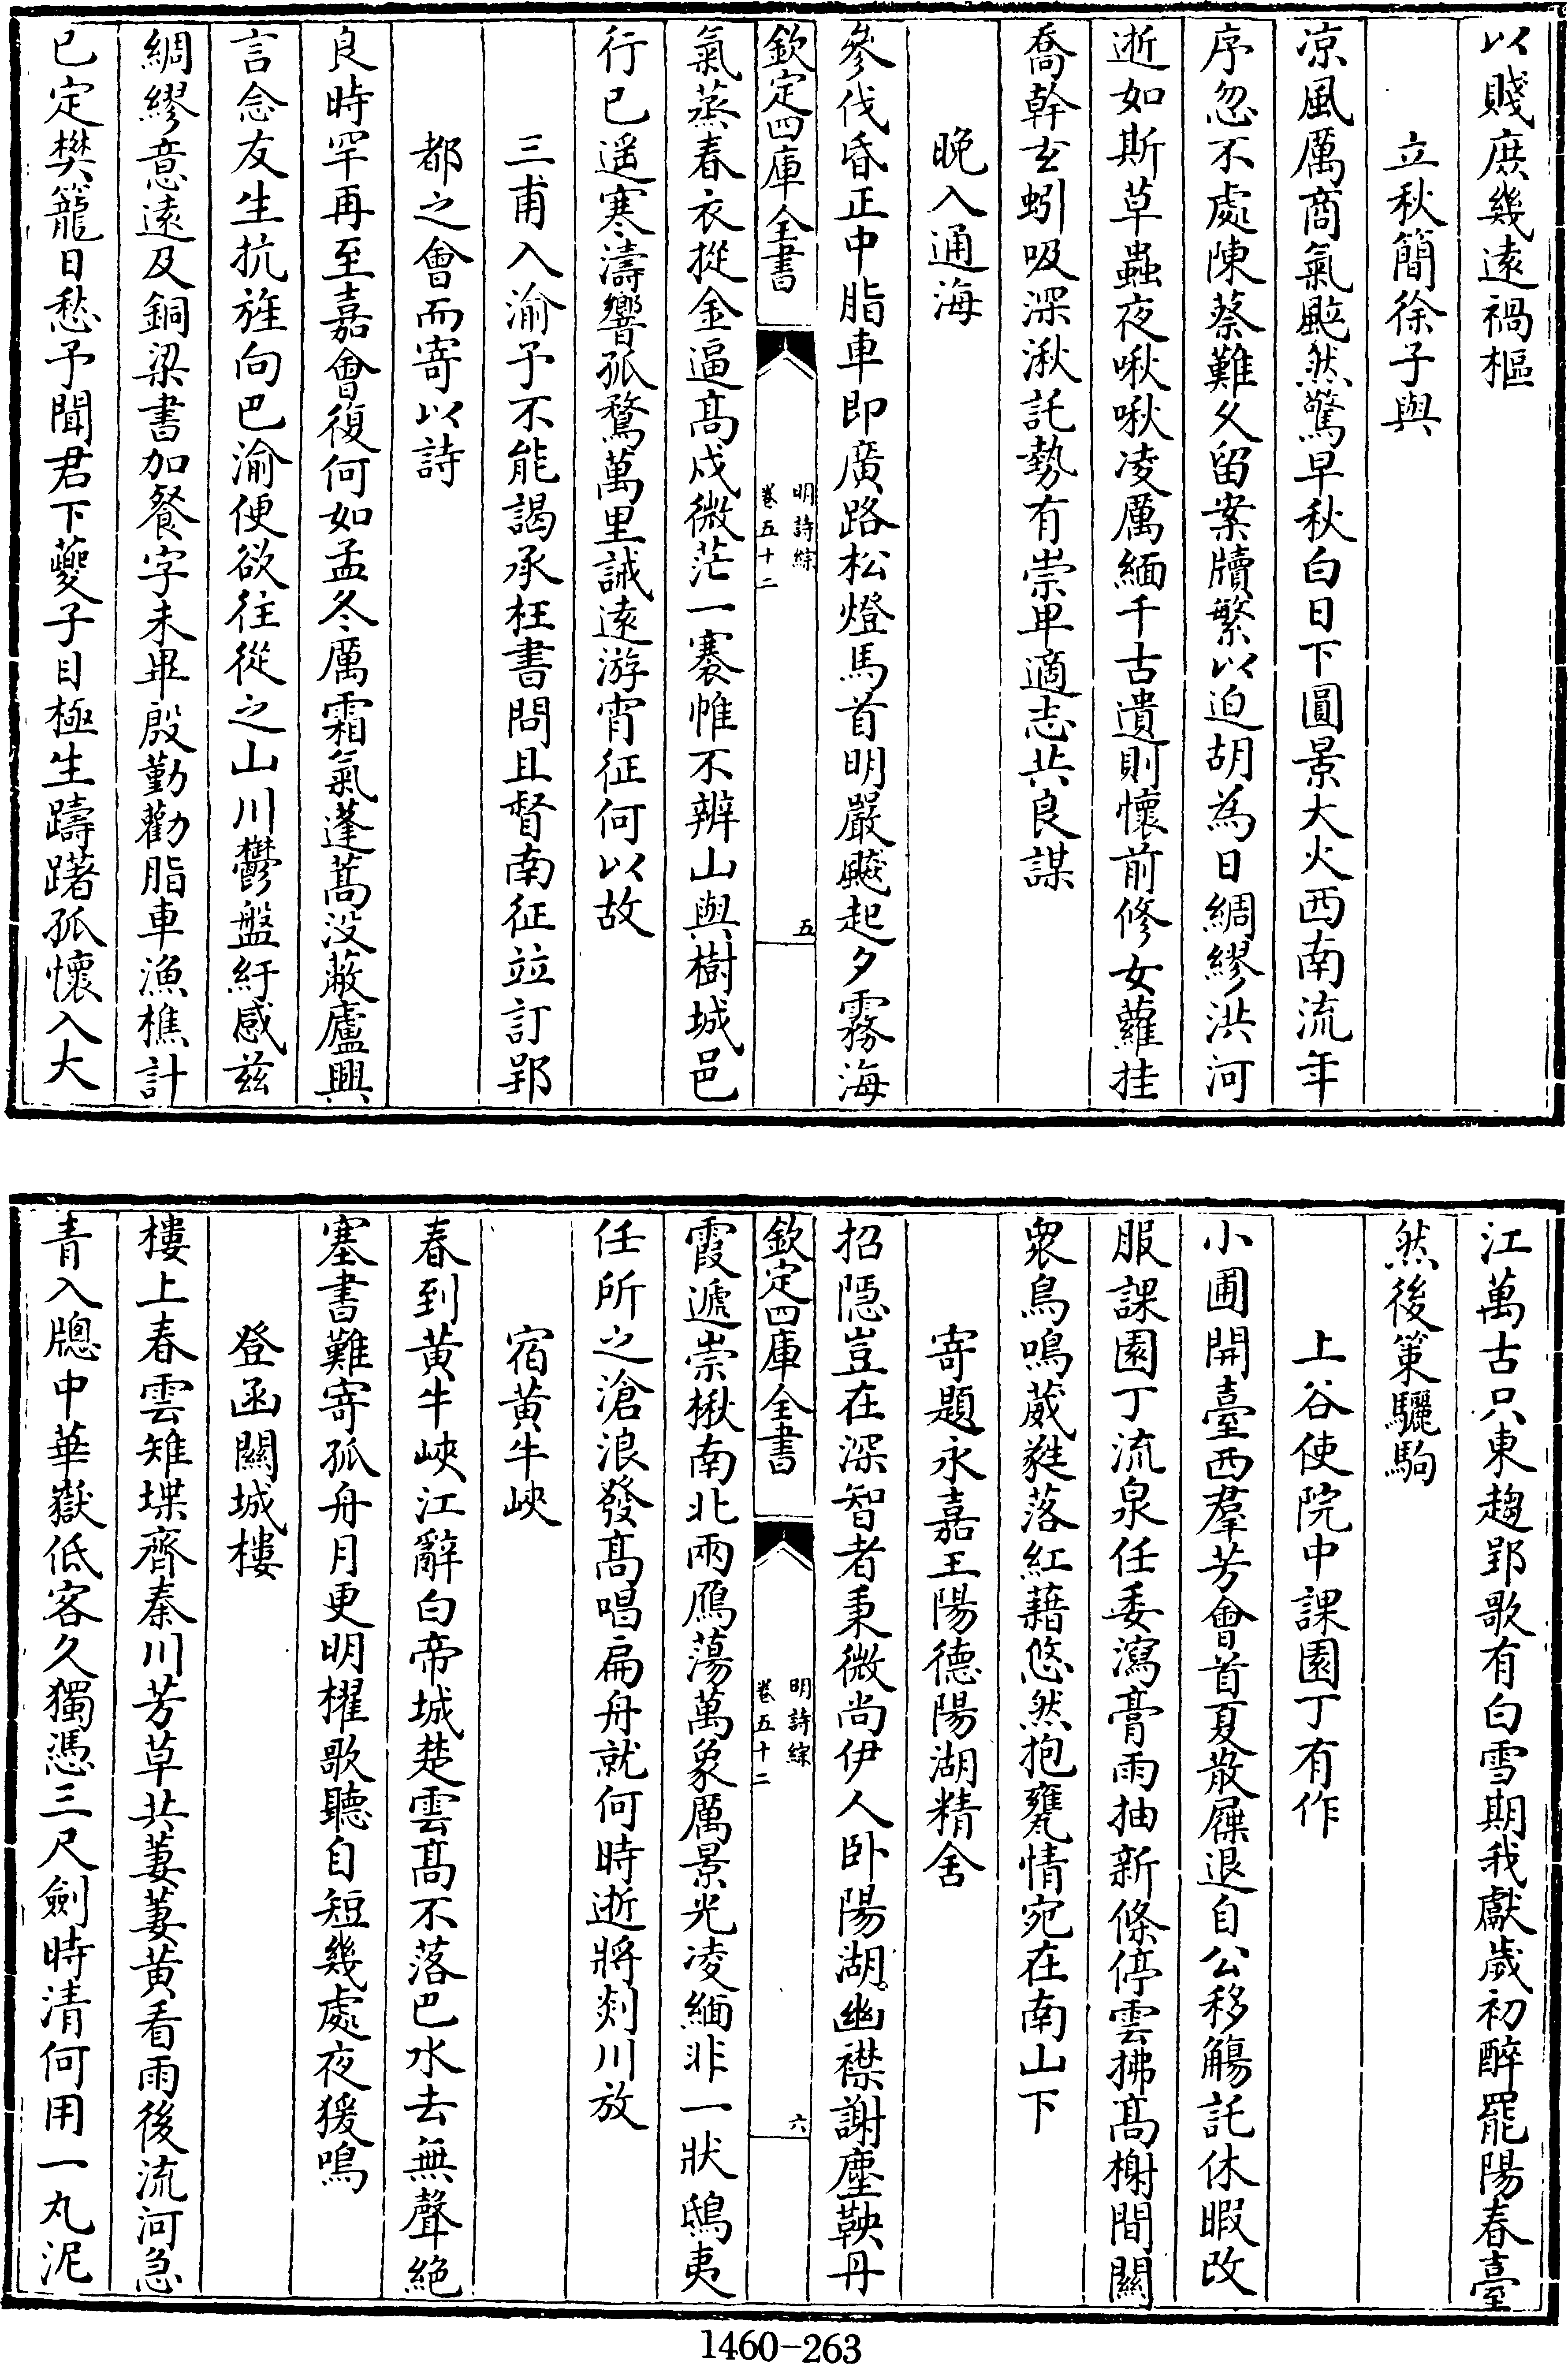 以賤庶幾遠禍樞
立秋簡徐子與
凉風厲商氣颷然驚早秋白日下圓景大火西南流年
序忽不處陳蔡難久留案牘繁以迫胡為日綢繆洪河
逝如斯草蟲夜啾啾凌厲緬千古遺則懷前修女蘿挂
喬幹玄蚓吸深湫託勢有崇卑適志共良謀
晚入通海
參伐昏正中脂車即廣路松燈馬首明嚴飈起夕霧海
欽定四庫全書
明詩綜
卷五十二
五
氣蒸春衣摐金逼髙戍微茫一褰帷不辨山與樹城邑
行已遥寒濤響孤鶩萬里誡遠游宵征何以故
三甫入渝予不能謁承枉書問且督南征竝訂郢
都之會而寄以詩
良時罕再至嘉會復何如孟冬厲霜氣蓬蒿没蔽廬興
言念友生抗旌向巴渝便欲往從之山川鬱盤紆感兹
綢繆意遠及銅梁書加餐字未畢殷勤勸脂車漁樵計
已定樊籠日愁予聞君下夔子目極生躊躇孤懷入大
江萬古只東趨郢歌有白雪期我獻歲初醉罷陽春臺
然後策驪駒
上谷使院中課園丁有作
小圃開臺西羣芳會首夏散屧退自公移觴託休暇改
服課園丁流泉任委瀉膏雨抽新條停雲拂髙榭間關
衆鳥鳴葳蕤落紅藉悠然抱甕情宛在南山下
寄題永嘉王陽德陽湖精舍
招隱豈在深智者秉微尚伊人卧陽湖幽襟謝塵鞅丹
欽定四庫全書
明詩綜
卷五十二
六
霞遞崇楸南北兩鴈蕩萬象厲景光凌緬非一狀鴟夷
任所之滄浪發髙唱扁舟就何時逝將剡川放
宿黄牛峽
春到黄牛峽江辭白帝城楚雲髙不落巴水去無聲絶
塞書難寄孤舟月更明櫂歌聽自短幾處夜猨鳴
登函關城樓
樓上春雲雉堞齊秦川芳草共萋萋黄看雨後流河急
青入牎中華嶽低客久獨憑三尺劍時清何用一丸泥
1460-263